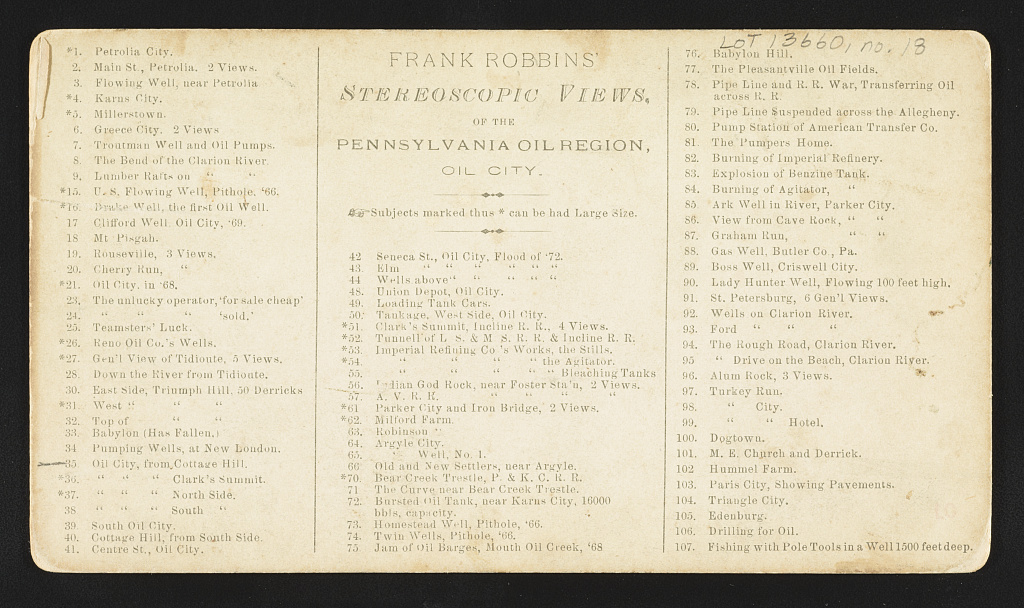 LOT 13660, no. 18
*1. Petrolia City.
2. Main St., Petrolia. 2 Views.
3. Flowing Well, near Petrolia
*4. Karns City.
*5. Millerstown.
6. Greece City. 2 Views
7. Troutman Well and Oil Pumps.
8. The Bend of the Clarion River.
9. Lumber Rafts on “ “
*15. U. S. Flowing Well, Pithole, '66.
*16. Drake Well, the first Oil Well.
17 Clifford Well. Oil City, '69.
18 Mt Pisgah.
19. Rouseville, 3 Views.
20. Cherry Run, “
*21. Oil City, in '68.
23, The unlucky operator, 'for sale cheap'
24. “ “ “ 'sold.'
25. Teamsters' Luck.
*26. Reno Oil Co.'s Wells.
*27. Gen'l View of Tidioute, 5 Views.
28. Down the River from Tidioute.
30. East Side, Triumph Hill, 50 Derricks
*31. West “ “ “
32. Top of “ “
33. Babylon (Has Fallen.)
34 Pumping Wells, at New London.
35 Oil City, from Cottage Hill.
*36. “ “ “ Clark's Summit.
*37. “ “ “ North Side.
38 “ “ “ South “
39. South Oil City.
40. Cottage Hill, from South Side.
41. Centre St., Oil City.
FRANK ROBBINS'
STEREOSCOPIC VIEWS,
OF THE
PENNSYLVANIA OIL REGION,
OIL CITY.
☞Subjects marked thus * can be had Large Size.
42 Seneca St., Oil City, Flood of '72.
43. Elm “ “ “ “ “ “
44 Wells above “ “ “ “ “
48. Union Depot, Oil City.
49. Loading Tank Cars.
50. Tankage, West Side, Oil City.
*51. Clark's Summit, Incline R. R., 4 Views.
*52. Tunnell of L S. & M S. R. R. & Incline R. R.
*53. Imperial Refining Co 's Works, the Stills.
*54. “ “ “ “ the Agitator.
55. “ “ “ “ Bleaching Tanks
56. Indian God Rock, near Foster Sta'n, 2 Views.
57. A. V. R. R. “ “ “ “
*61 Parker City and Iron Bridge, 2 Views.
*62. Milford Farm.
63. Robinson “
64. Argyle City.
65. “ Well, No. 1.
66 Old and New Settlers, near Argyle.
*70. Bear Creek Trestle, P. & K. C. R. R.
71 The Curve near Bear Creek Trestle.
72. Bursted Oil Tank, near Karns City, 16000
bbls, capacity.
73. Homestead Well, Pithole, '66.
74. Twin Wells, Pithole, '66.
75 Jam of Oil Barges, Mouth Oil Creek, '68
76. Babylon Hill.
77. The Pleasantville Oil Fields.
78. Pipe Line and R. R. War, Transferring Oil
across R. R.
79. Pipe Line Suspended across the Allegheny.
80. Pump Station of American Transfer Co.
81. The Pumpers Home.
82. Burning of Imperial Refinery.
83. Explosion of Benzine Tank.
84. Burning of Agitator, “
85. Ark Well in River, Parker City.
86. View from Cave Rock, “ “
87. Graham Run, “ “
88. Gas Well, Butler Co., Pa.
89. Boss Well, Criswell City.
90. Lady Hunter Well, Flowing 100 feet high.
91. St. Petersburg, 6 Gen'l Views.
92. Wells on Clarion River.
93. Ford “ “ “
94. The Rough Road, Clarion River.
95 “ Drive on the Beach, Clarion River.
96. Alum Rock, 3 Views.
97. Turkey Run.
98. “ City.
99. “ “ Hotel.
100. Dogtown.
101. M. E. Church and Derrick.
102 Hummel Farm.
103. Paris City, Showing Pavements.
104. Triangle City.
105. Edenburg.
106. Drilling for Oil.
107. Fishing with Pole Tools in a Well 1500 feet deep.